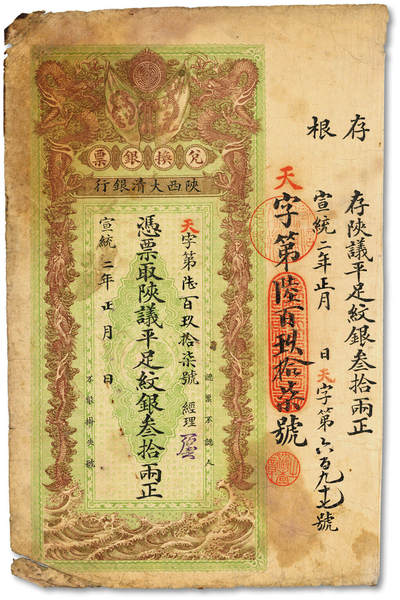 存根
存陝議平足紋銀叁拾兩正
宣統二年正月 日 天字第六百九十七號
天字第陸百玖拾柒號
兌換銀票
陝西大清銀行
憑票不認人
天字第陸百玖拾柒號 經理
憑票取陝議平足紋銀叁拾兩正
宣統二年正月 日
不報掛失號